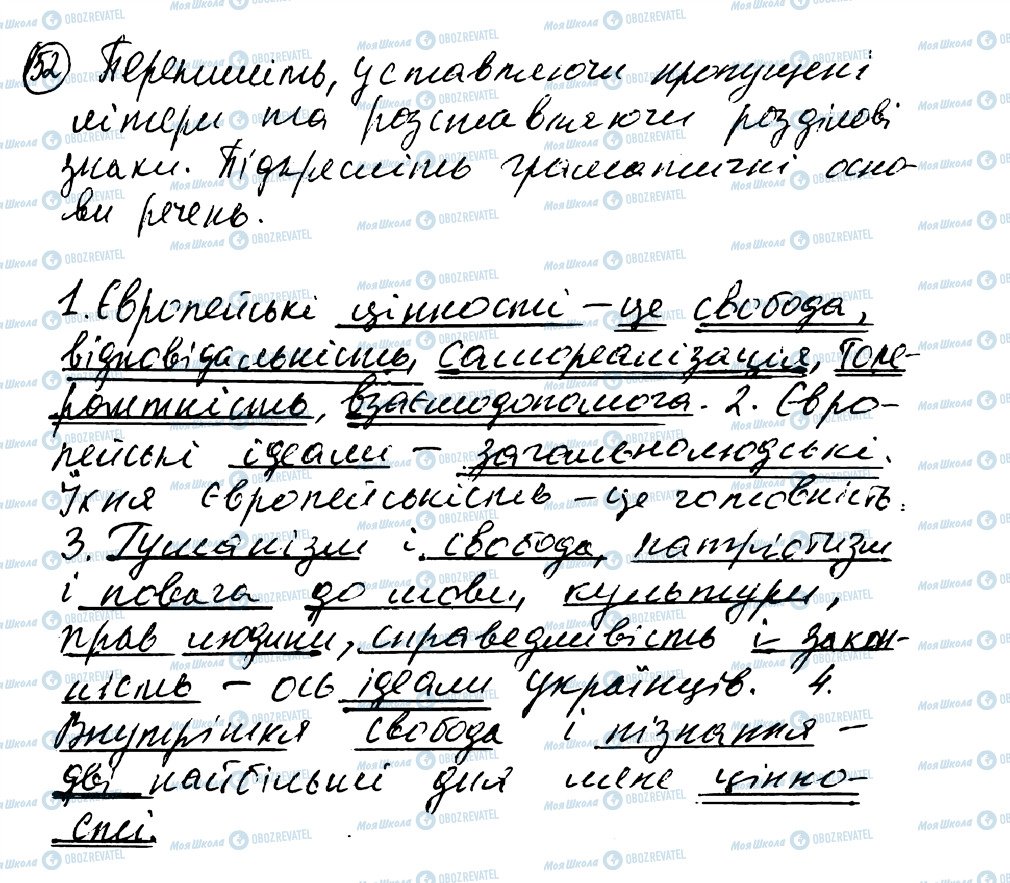 52 Перепишіть, уставляючи пропущені
літери та розставляючи розділові
знаки. Підкресліть граматичні осно-
ви речень.
1. Європейські цінності – це свобода,
відповідальність, самореалізація, толе-
рантність, взаємодопомога. 2. Євро-
пейські ідеали – загальнолюдські.
Їхня європейськість – це готовність.
3. Гуманізм і свобода, патріотизм
і повага до мови, культури,
прав людини, справедливість і закон-
ність – ось ідеали українців. 4.
Внутрішня свобода і пізнання –
дві найбільші для мене цінно-
сті.